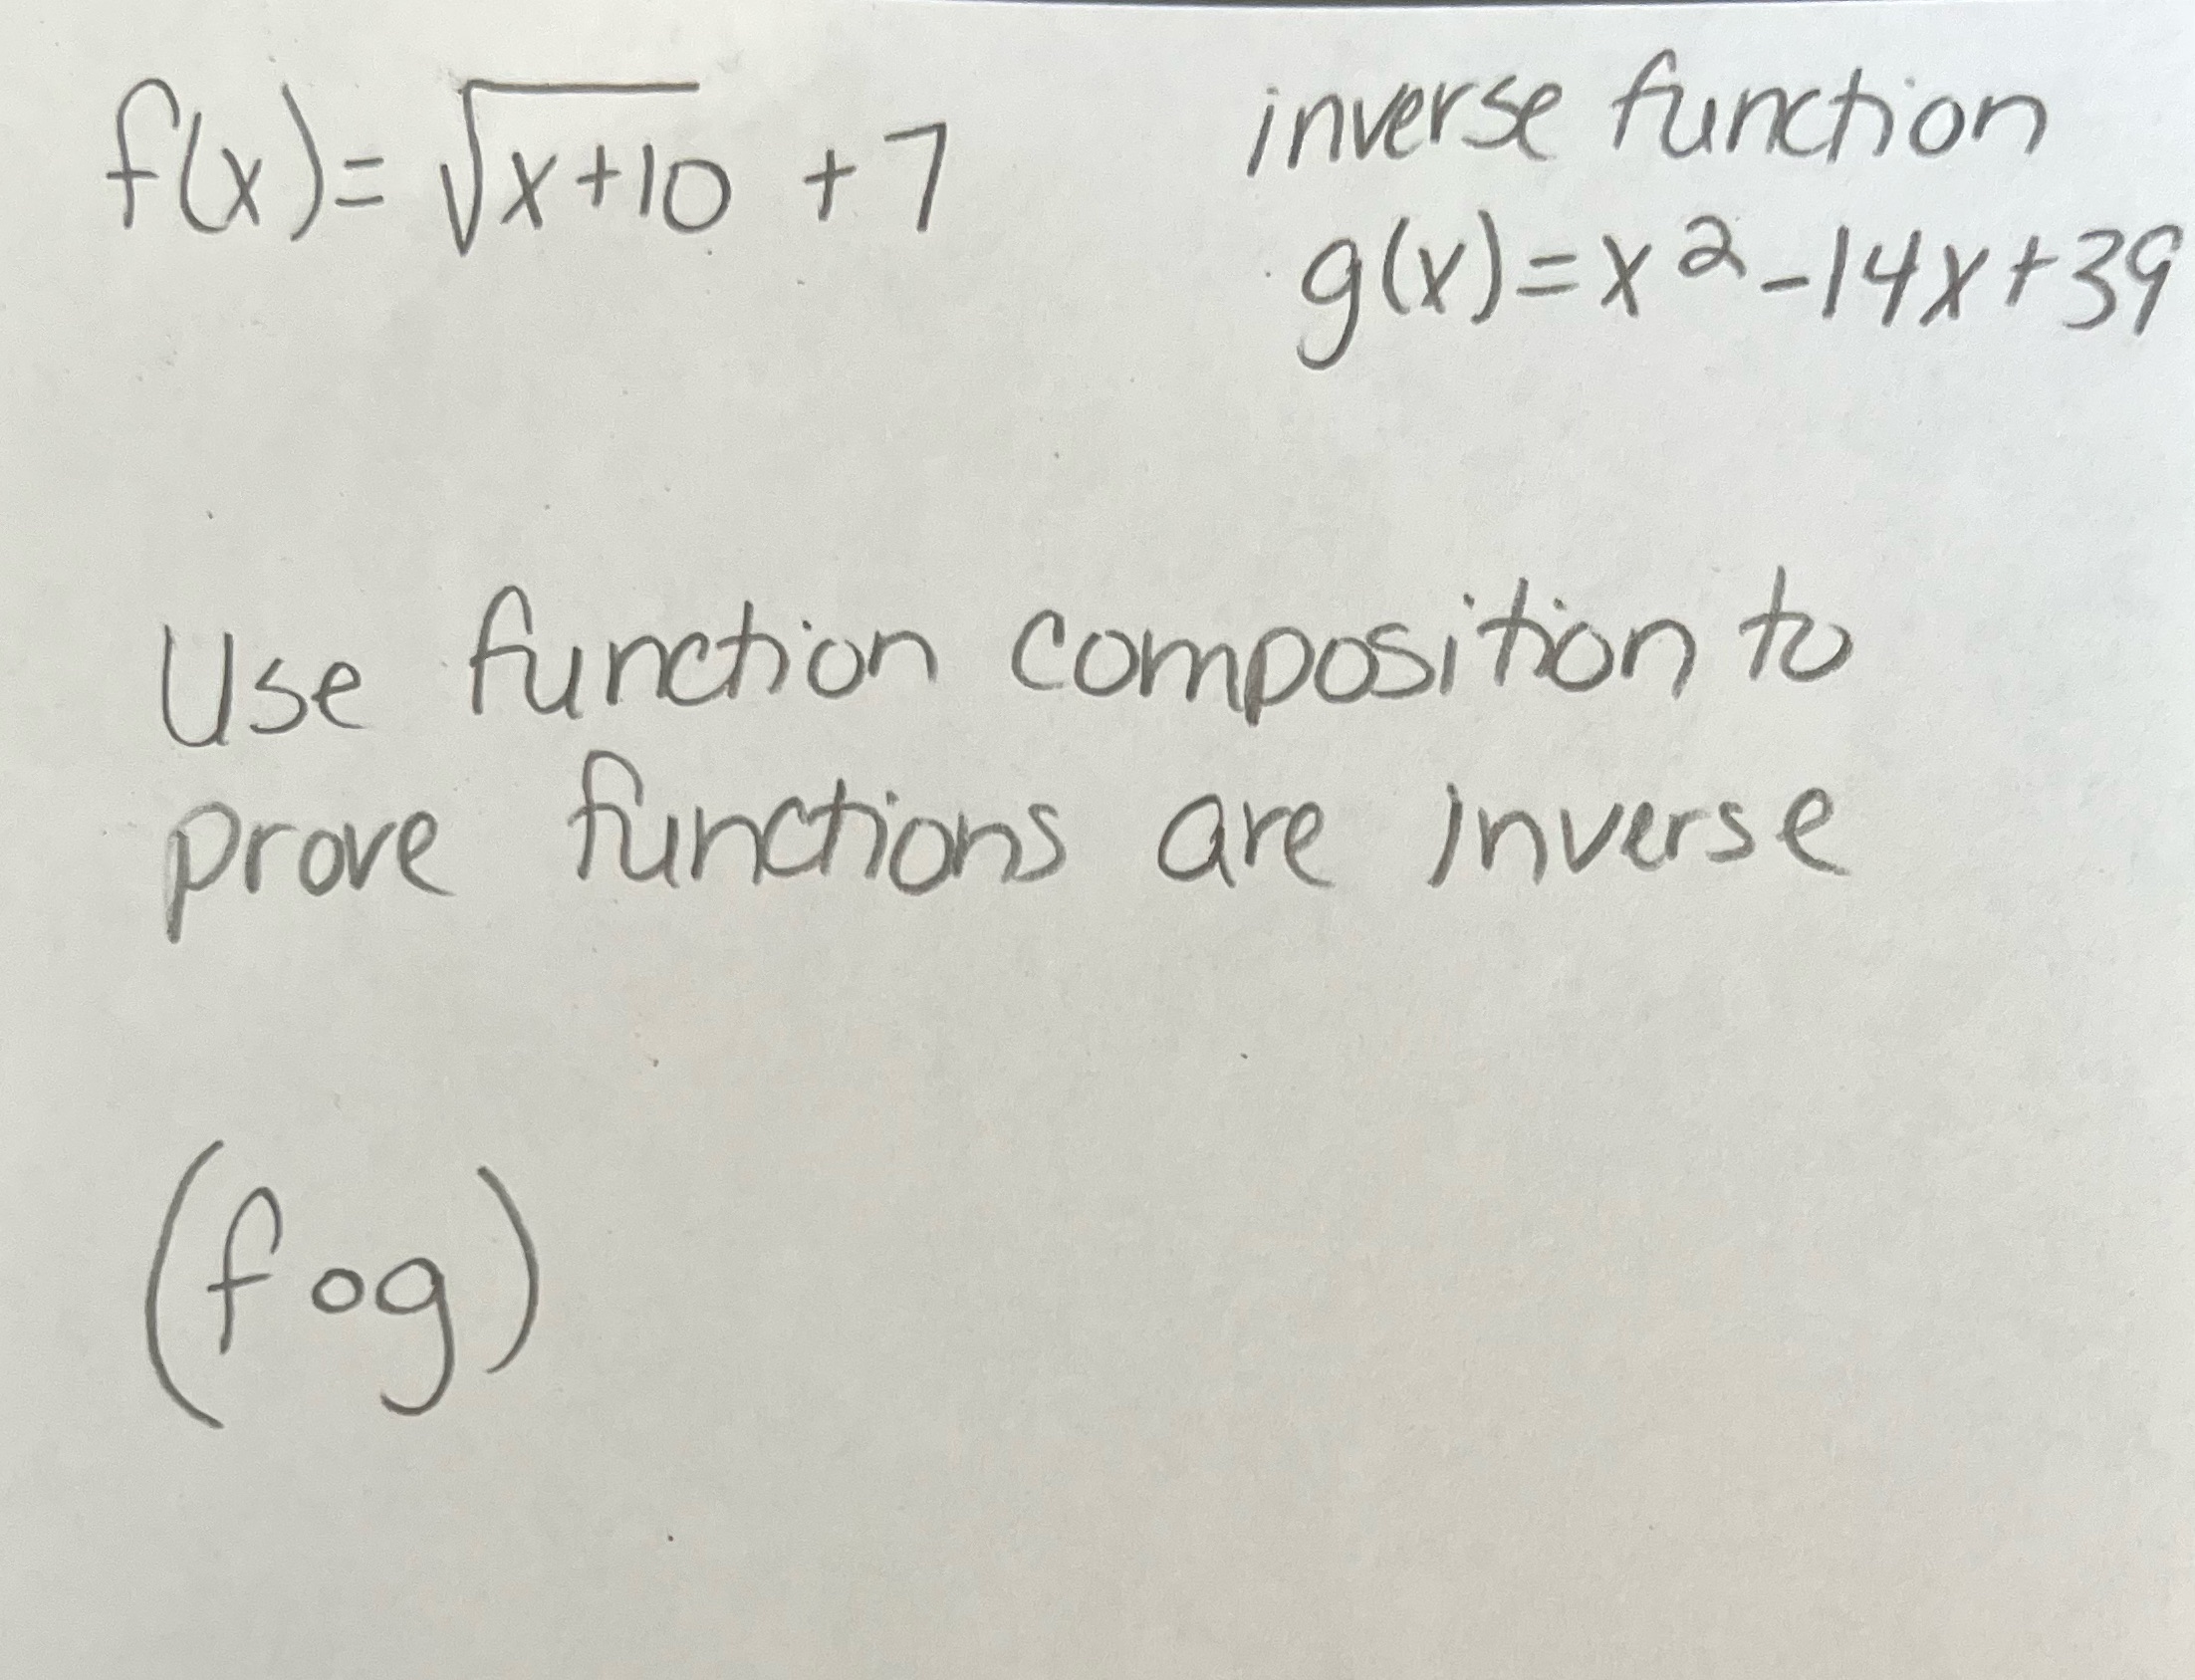 f(x) = √x+10 + 7
inverse function
g(x) = x² - 14x + 39
Use function composition to
prove functions are inverse
(f o g)